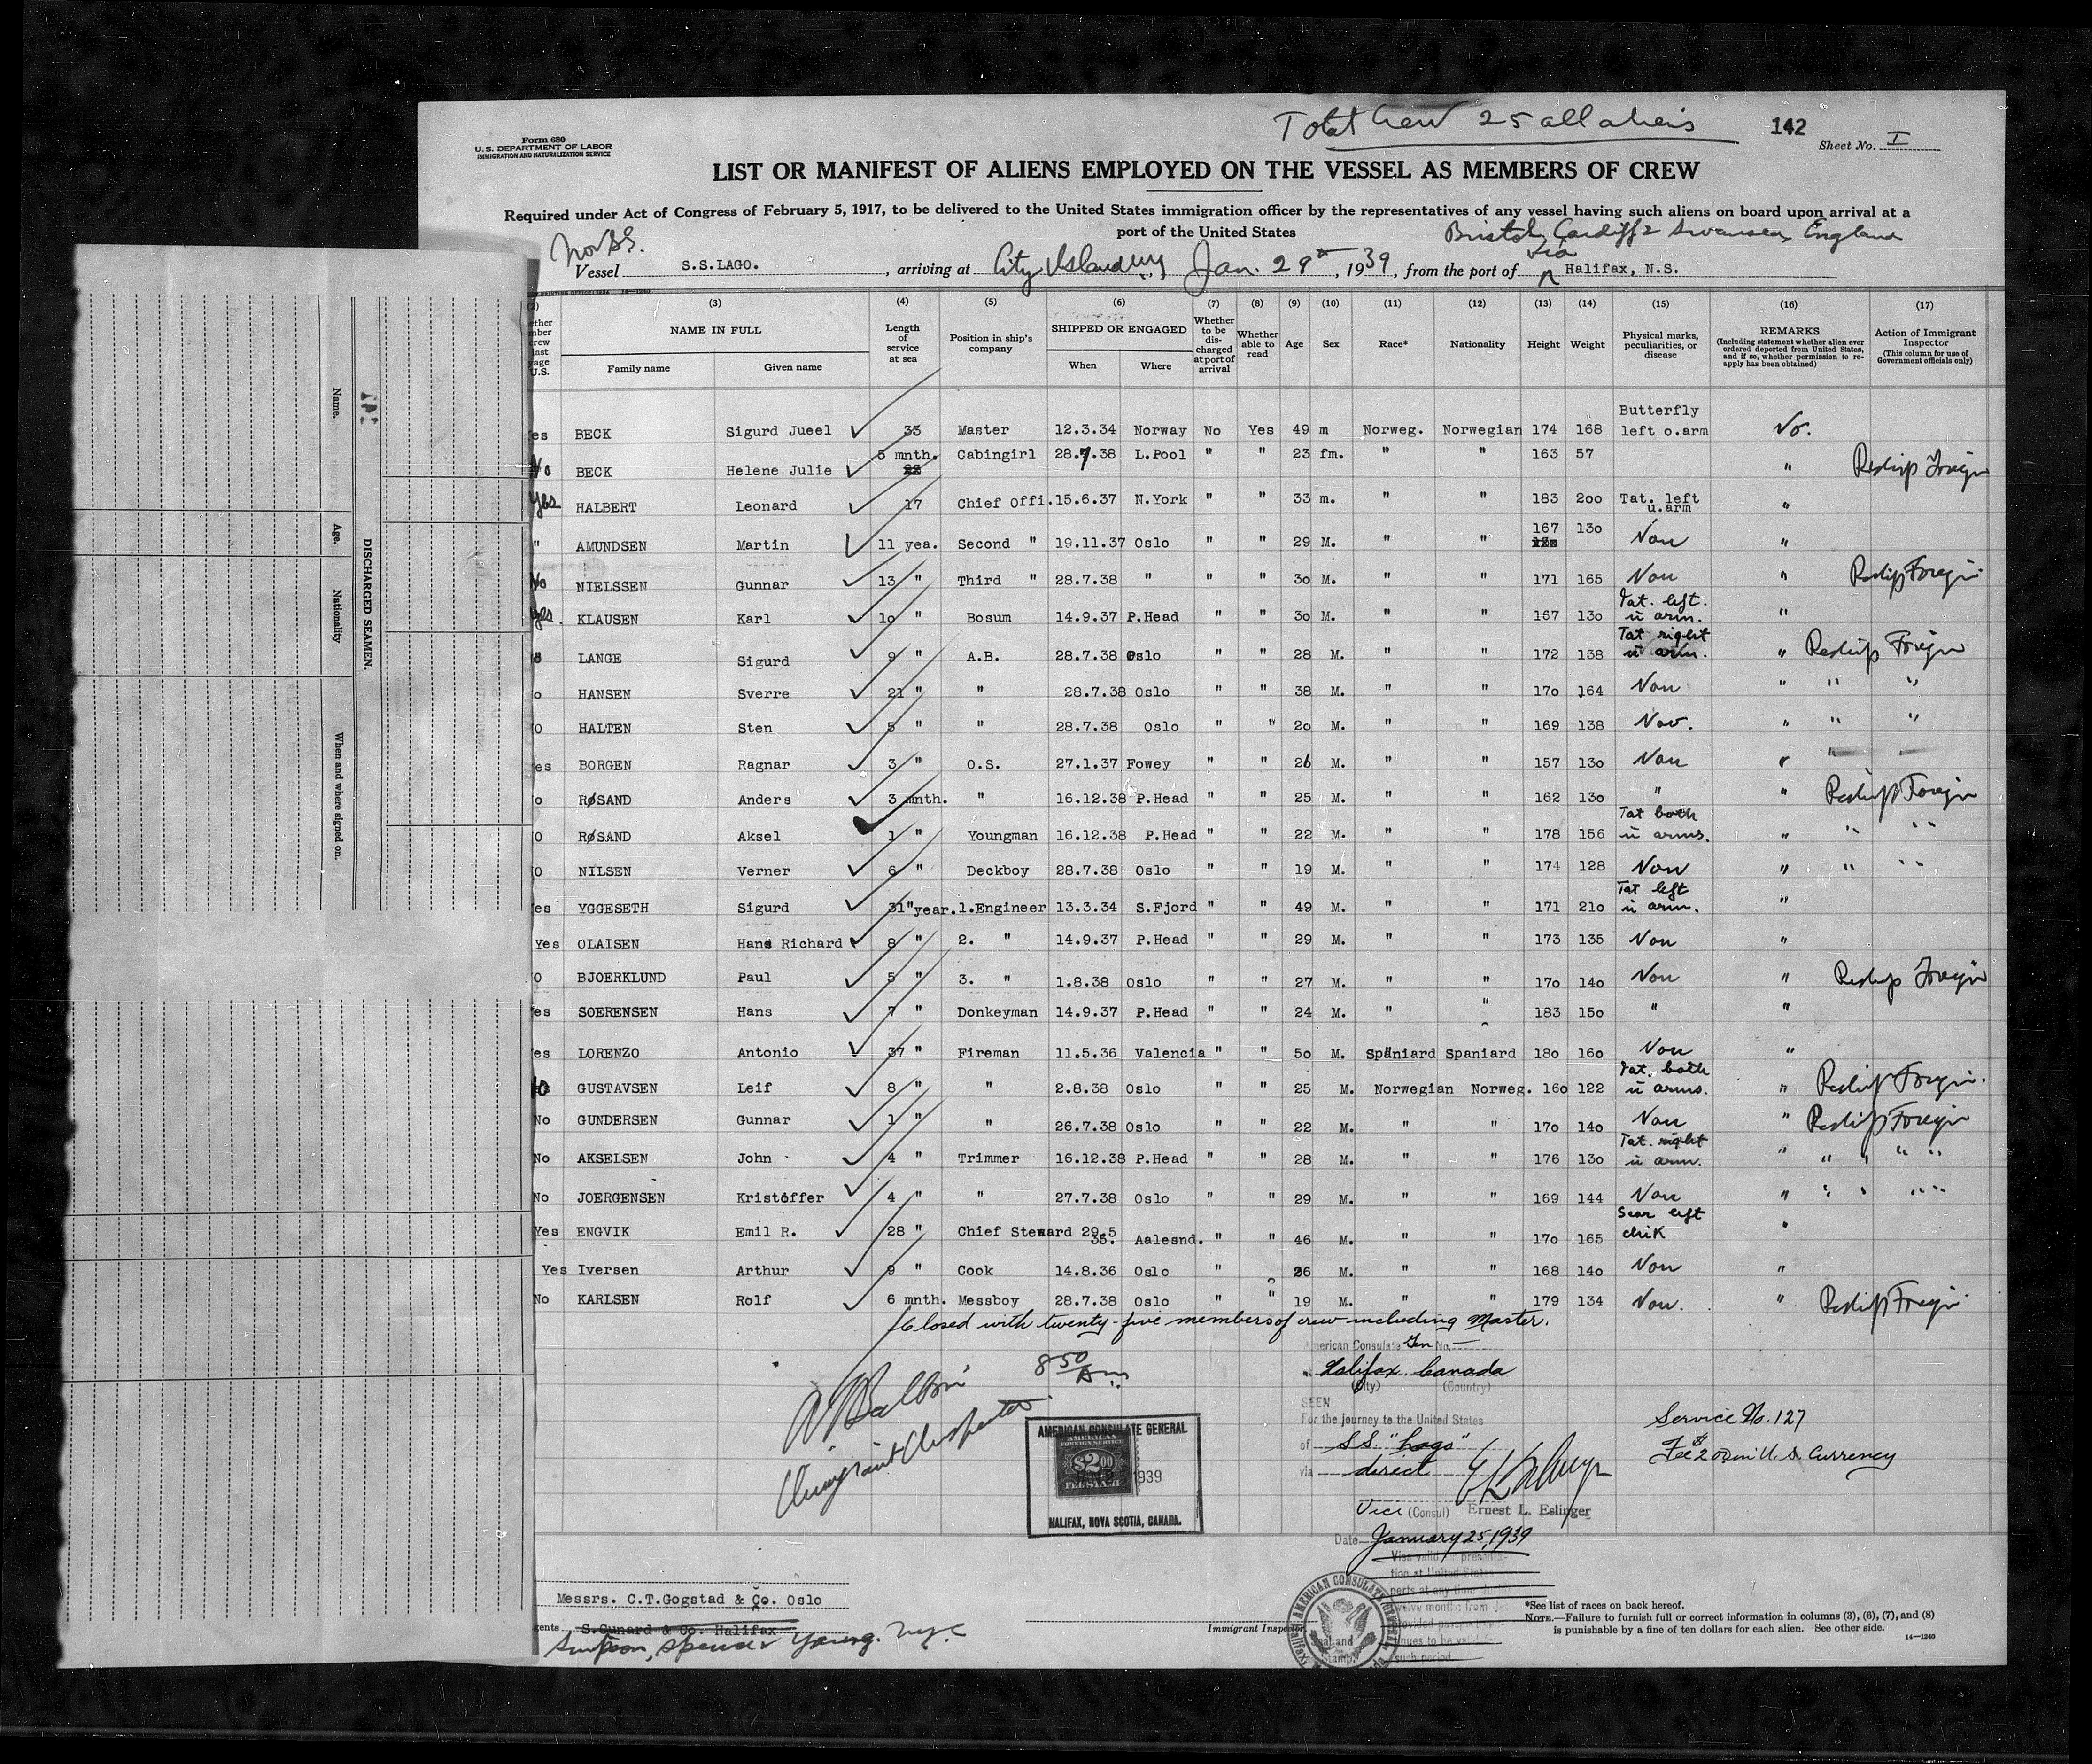 Total Crew 25 all aliens
142
Form 680
U. S. DEPARTMENT OF LABOR
IMMIGRATION AND NATURALIZATION SERVICE
Sheet No. I
LIST OR MANIFEST OF ALIENS EMPLOYED ON THE VESSEL AS MEMBERS OF CREW
Required under Act of Congress of February 5, 1917, to be delivered to the United States immigration officer by the representatives of any vessel having such aliens on board upon arrival at a
port of the United States
Bristol, Cardiff & Swansea, England
via
Vessel S.S.LAGO. , arriving at City Island, Jan. 29 , 1939, from the port of Halifax, N.S.
(3) (4) (5) (6) (7) (8) (9) (10) (11) (12) (13) (14) (15) (16) (17)
NAME IN FULL
Family name Given name
Length of service at sea
Position in ship's company
SHIPPED OR ENGAGED
When Where
Whether to be discharged at port of arrival
Whether able to read
Age Sex Race* Nationality Height Weight
Physical marks, peculiarities, or disease
REMARKS
(Including statement whether alien ever ordered deported from United States, and if so, whether permission to reapply has been obtained)
Action of Immigrant Inspector
(This column for use of Government officials only)
es BECK Sigurd Jueel 33 Master 12.3.34 Norway No Yes 49 m Norweg. Norwegian 174 168 Butterfly left o.arm No.
No BECK Helene Julie 5 mnth. Cabingirl 28.7.38 L.Pool " " 23 fm. " " 163 57 " Reship Foreign
Yes HALBERT Leonard 17 Chief Offi. 15.6.37 N.York " " 33 m. " " 183 200 Tat. left u.arm "
" AMUNDSEN Martin 11 yea. Second " 19.11.37 Oslo " " 29 M. " " 167 130 Non "
No NIELSSEN Gunnar 13 " Third " 28.7.38 " " " 30 M. " " 171 165 Non " Reship Foreign
Yes. KLAUSEN Karl 10 " Bosum 14.9.37 P.Head " " 30 M. " " 167 130 Tat. left. u arm. "
LANGE Sigurd 9 " A.B. 28.7.38 Oslo " " 28 M. " " 172 138 Tat right u arm. " Reship Foreign
o HANSEN Sverre 21 " " 28.7.38 Oslo " " 38 M. " " 170 164 Non " " "
O HALTEN Sten 5 " " 28.7.38 Oslo " " 20 M. " " 169 138 Non. " " "
es BORGEN Ragnar 3 " O.S. 27.1.37 Fowey " " 26 M. " " 157 130 Non "
o RØSAND Anders 3 mnth. " 16.12.38 P.Head " " 25 M. " " 162 130 " " Reship Foreign
O RØSAND Aksel 1 " Youngman 16.12.38 P.Head " " 22 M. " " 178 156 Tat both u arms. " " "
O NILSEN Verner 6 " Deckboy 28.7.38 Oslo " " 19 M. " " 174 128 Non " " "
es YGGESETH Sigurd 31"year. 1.Engineer 13.3.34 S.Fjord " " 49 M. " " 171 210 Tat left u arm. "
Yes OLAISEN Hans Richard 8 " 2. " 14.9.37 P.Head " " 29 M. " " 173 135 Non "
O BJOERKLUND Paul 5 " 3. " 1.8.38 Oslo " " 27 M. " " 170 140 Non " Reship Foreign
es SOERENSEN Hans 7 " Donkeyman 14.9.37 P.Head " " 24 M. " " 183 150 " "
es LORENZO Antonio 37 " Fireman 11.5.36 Valencia " " 50 M. Spaniard Spaniard 180 160 Non "
No GUSTAVSEN Leif 8 " " 2.8.38 Oslo " " 25 M. Norwegian Norweg. 160 122 Tat. both u arms. " Reship Foreign.
No GUNDERSEN Gunnar 1 " " 26.7.38 Oslo " " 22 M. " " 170 140 Non " Reship Foreign
No AKSELSEN John 4 " Trimmer 16.12.38 P.Head " " 28 M. " " 176 130 Tat. right u arm. " " " "
No JOERGENSEN Kristoffer 4 " " 27.7.38 Oslo " " 29 M. " " 169 144 Non " " " "
Yes ENGVIK Emil R. 28 " Chief Steward 29.5 35. Aalesnd. " " 46 M. " " 170 165 Scar left chik "
Yes Iversen Arthur 9 " Cook 14.8.36 Oslo " " 26 M. " " 168 140 Non "
No KARLSEN Rolf 6 mnth. Messboy 28.7.38 Oslo " " 19 M. " " 179 134 Non. " Reship Foreign
Closed with twenty-five members of crew including Master.
American Consulate Gen No.
Halifax Canada
(City) (Country)
SEEN
For the journey to the United States
of S.S. "Lago"
via direct
Vice (Consul) Ernest L. Eslinger
Date January 25, 1939
8 50 Am
Immigrant Inspector
AMERICAN CONSULATE GENERAL
AMERICAN
FOREIGN SERVICE
$2.00
FEE STAMP
1939
HALIFAX, NOVA SCOTIA, CANADA.
Service No. 127
Fee $2.00 in U. S. Currency
Messrs. C.T.Gogstad & Co. Oslo
gents S.Cunard & Co. Halifax
Simpson, Spence & Young. N.Y.C
Immigrant Inspector
AMERICAN CONSULATE GENERAL
*See list of races on back hereof.
NOTE.—Failure to furnish full or correct information in columns (3), (6), (7), and (8)
is punishable by a fine of ten dollars for each alien. See other side.
14—1240
DISCHARGED SEAMEN.
Name.
Age.
Nationality
When and where signed on.